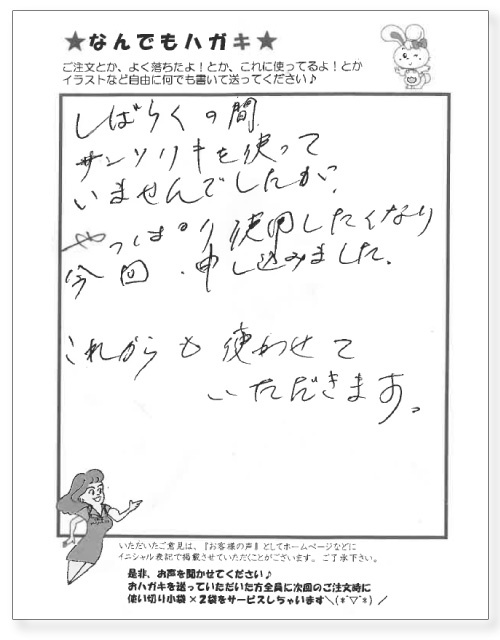 ★なんでもハガキ★
ご注文とか、よく落ちたよ！とか、これに使ってるよ！とか
イラストなど自由に何でも書いて送ってください♪
しばらくの間
サンソリキを使って
いませんでしたが、
やっぱり使用したくなり
今回、申し込みました。
これからも使わせて
いただきます。
いただいたご意見は、『お客様の声』としてホームページなどに
イニシャル表記で掲載させていただくことがございます。ご了承下さい。
是非、お声を聞かせてください♪
おハガキを送っていただいた方全員に次回のご注文時に
使い切り小袋×2袋をサービスしちゃいます＼(*ˆ▽ˆ*)／